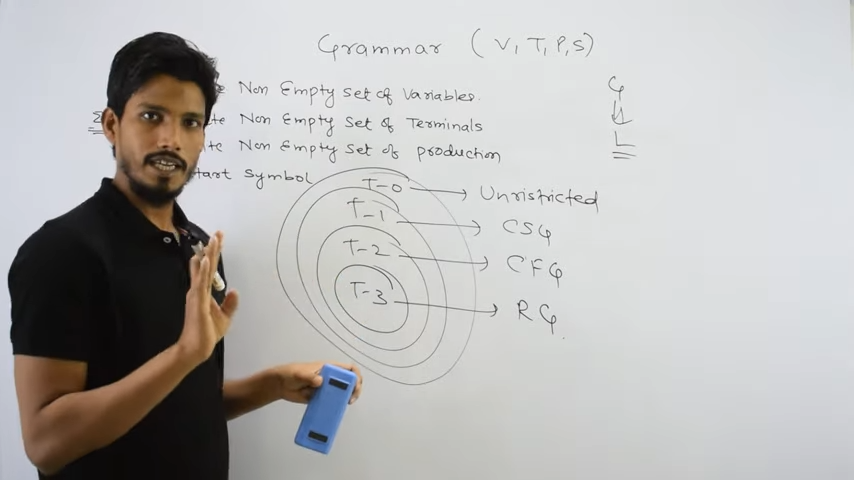 Grammar ( V, T, P, S)
Non Empty set of Variables.
Σ te Non Empty set of Terminals
te Non Empty set of production
tart Symbol
G
L
T-0 Unristricted
T-1 CSG
T-2 CFG
T-3 RG.